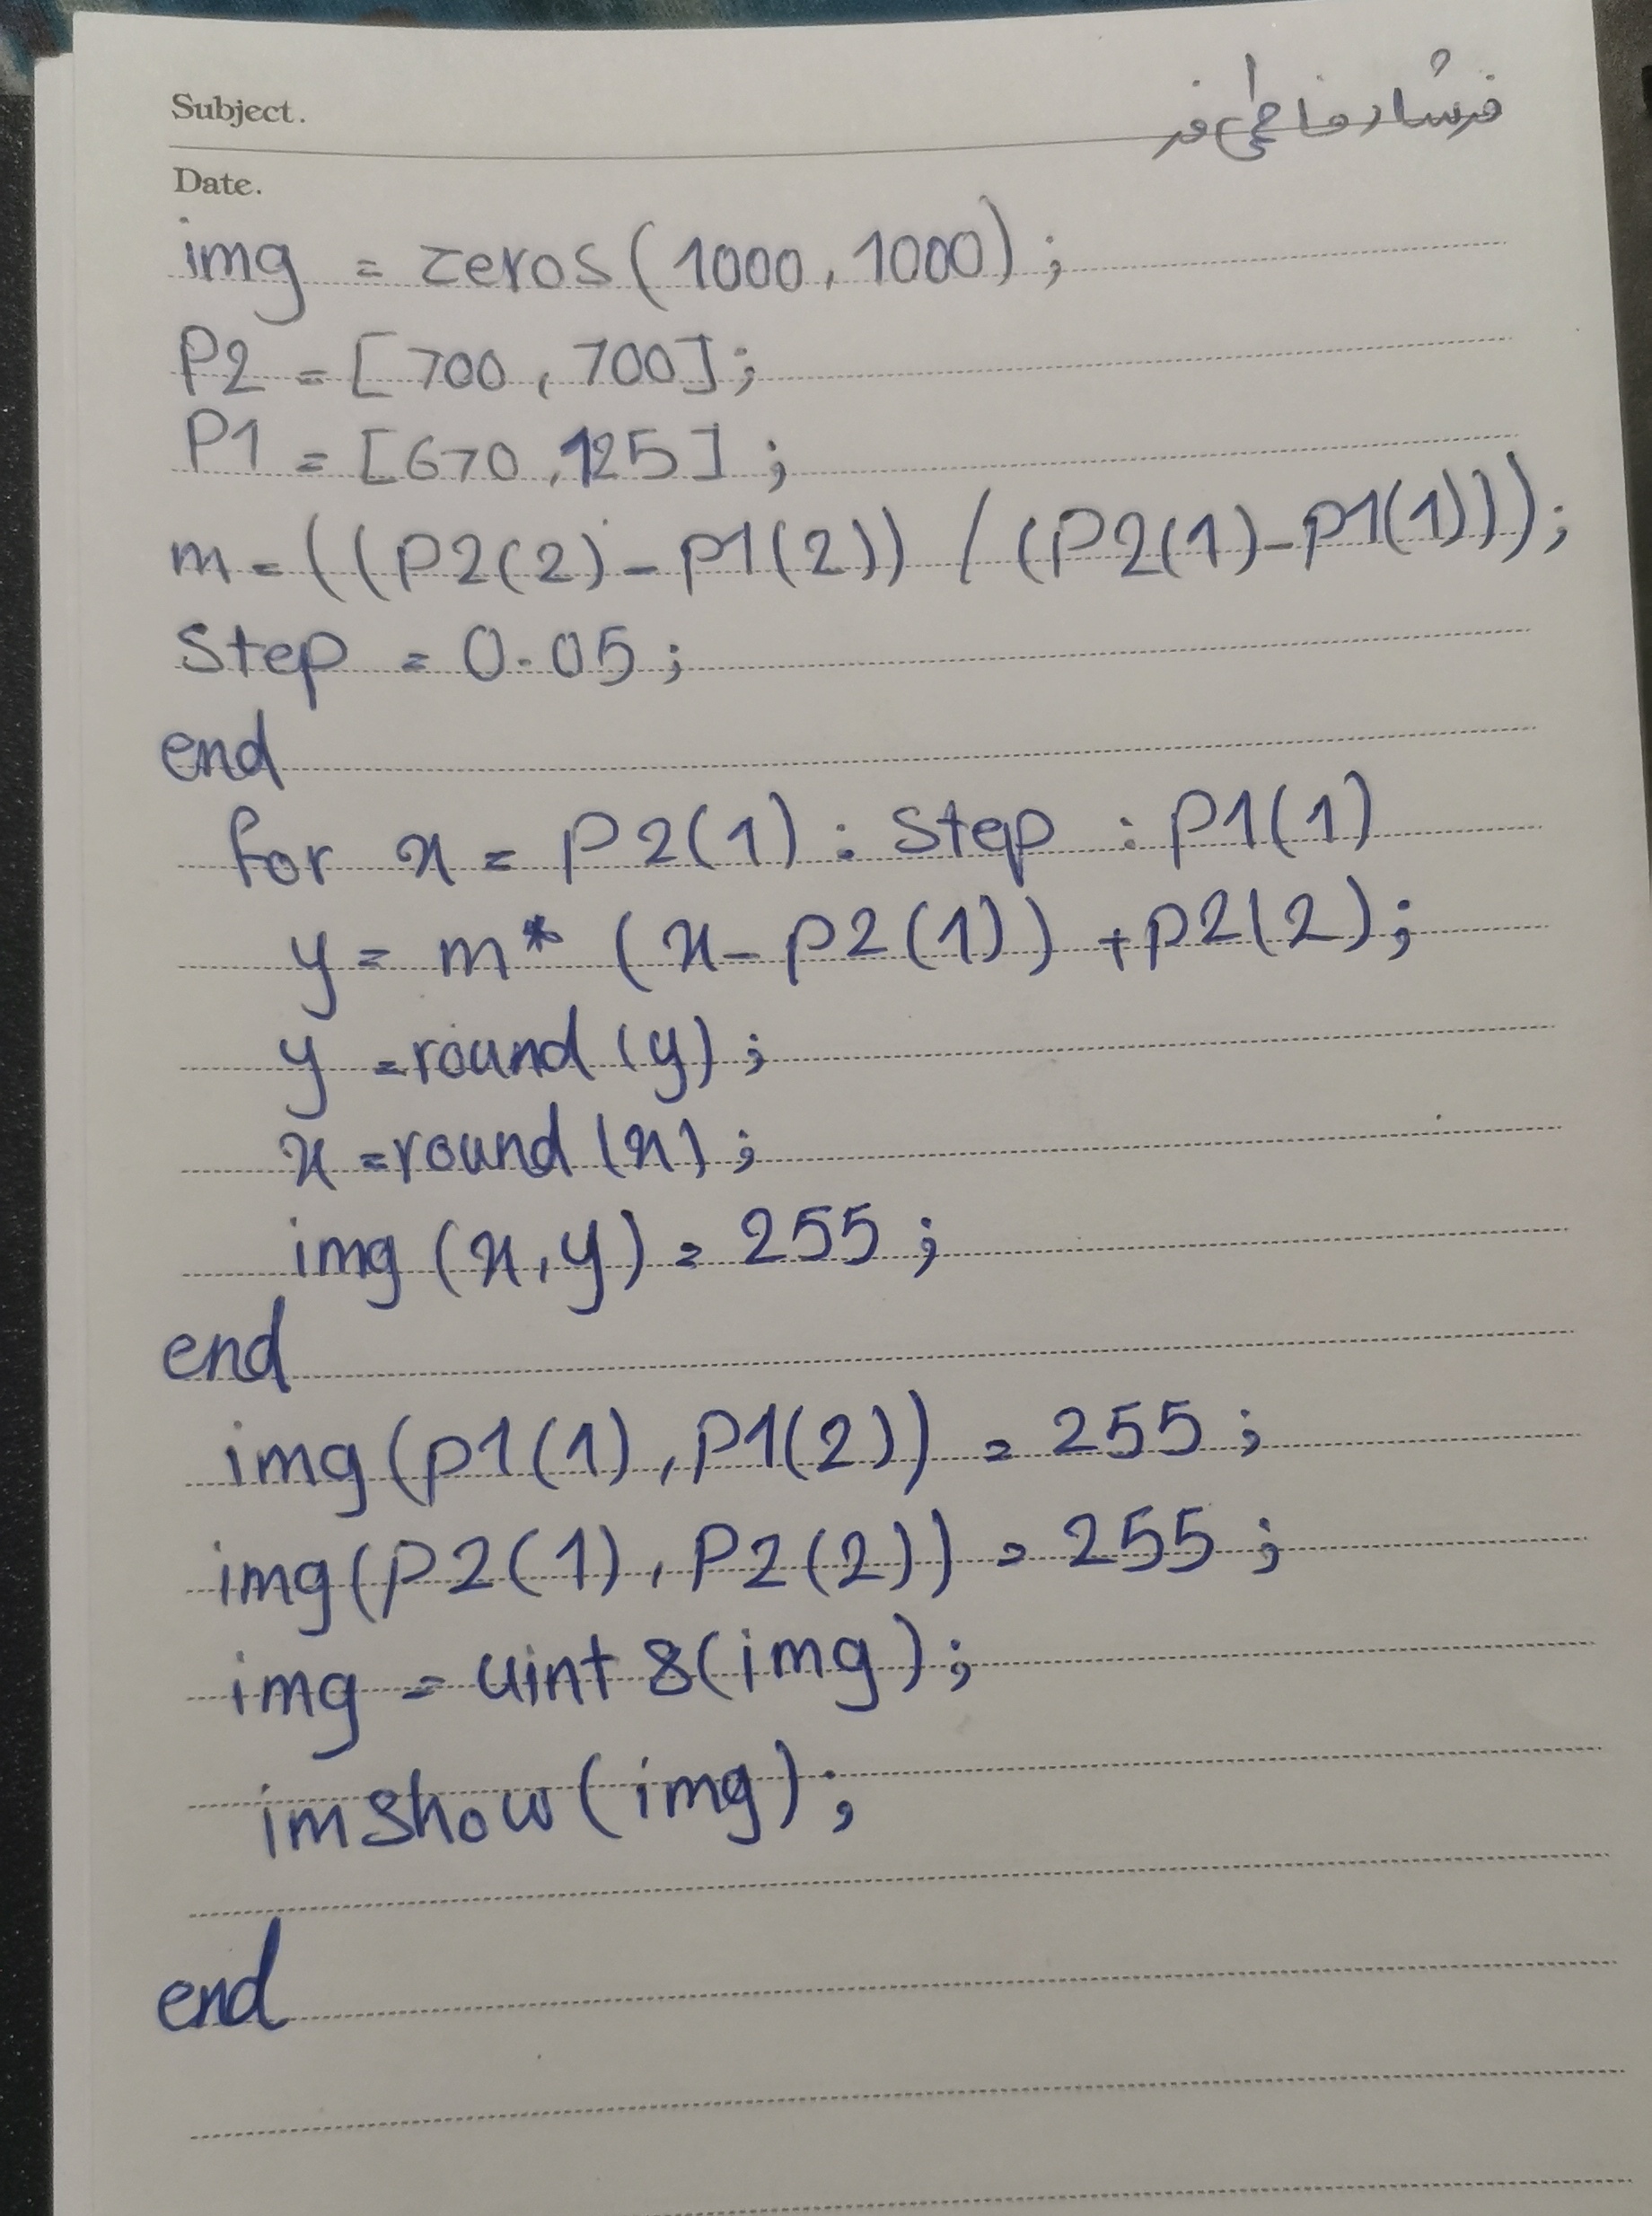 Subject.
فرشاد فاطمی فر
Date.
img = zeros(1000,1000);
P2 = [700,700];
P1 = [670,125];
m=((P2(2)-P1(2)) / (P2(1)-P1(1)));
Step = 0.05;
end
for x = P2(1) : Step : P1(1)
y = m* (x-P2(1)) +P2(2);
y =round(y);
x =round(x);
img(x,y)=255;
end
img(P1(1),P1(2)) = 255;
img(P2(1),P2(2)) = 255;
img = uint8(img);
imshow(img);
end